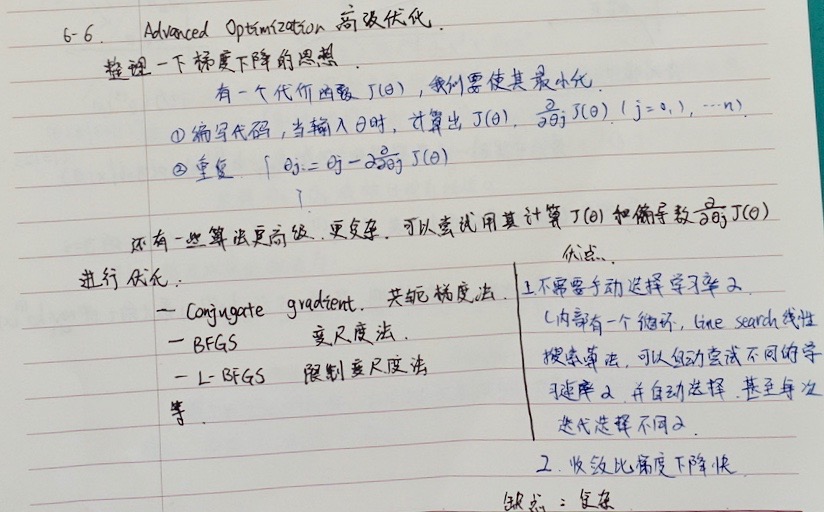 6-6. Advanced Optimization 高级优化.
整理一下梯度下降的思想.
有一个代价函数 J(θ), 我们要使其最小化.
① 编写代码, 当输入θ时, 计算出 J(θ). ∂/∂θj J(θ) (j=0,1, ...n)
② 重复 { θj := θj - α ∂/∂θj J(θ)
}
还有一些算法更高级. 更复杂. 可以尝试用其计算 J(θ) 和偏导数 ∂/∂θj J(θ)
进行优化:
— Conjugate gradient. 共轭梯度法.
— BFGS 变尺度法.
— L-BFGS 限制变尺度法
等.
优点.
1.不需要手动选择学习率α
(内部有一个循环, line search 线性
搜索算法, 可以自动尝试不同的学
习速率α 并自动选择. 甚至每次
迭代选择不同α.
2. 收敛比梯度下降快
缺点: 复杂